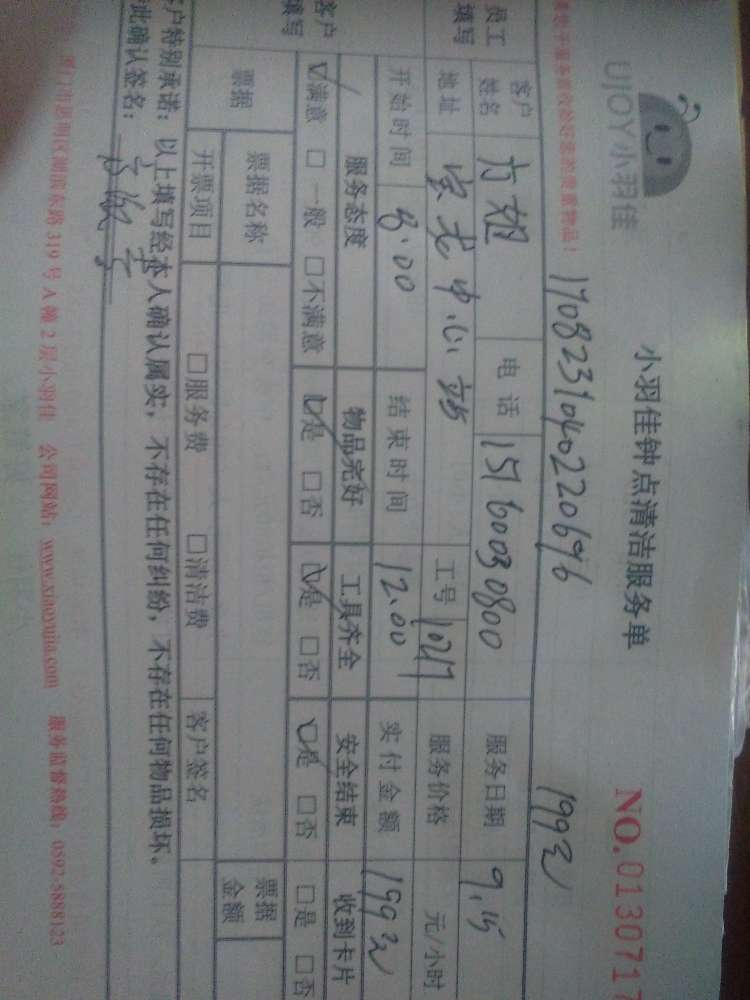 UJOY小羽佳
小羽佳钟点清洁服务单
NO.0130717
170823104022069b
199元
员工填写
客户姓名 方姐 电话 15160030800 服务日期 9.15
地址 中心站 工号 服务价格 元/小时
开始时间 8.00 结束时间 12.00 实付金额 199元
客户填写
服务态度 物品完好 工具齐全 安全结束 收到卡片
☑满意 □一般 □不满意 ☑是 □否 ☑是 □否 ☑是 □否 □是 □否
票据 票据名称 票据金额
开票项目 □服务费 □清洁费 客户签名
客户特别承诺：以上填写经本人确认属实，不存在任何纠纷，不存在任何物品损坏。
此确认签名：
319号A幢2层小羽佳 公司网站：www.xiaoyujia.com 服务监督热线：0592-5888123